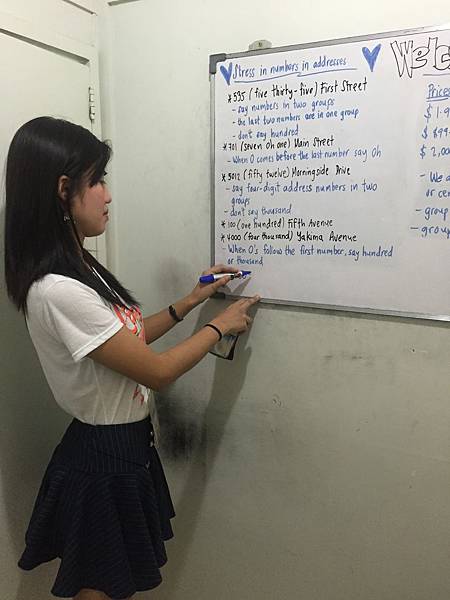 Stress in numbers in addresses
* 535 (five thirty-five) First Street
- say numbers in two groups
- the last two numbers are in one group
- don't say hundred
* 701 (seven oh one) Main Street
- When O comes before the last number say Oh
* 5012 (fifty twelve) Morningside Drive
- say four-digit address numbers in two
groups
- don't say thousand
* 100 (one hundred) Fifth Avenue
* 4000 (four thousand) Yakima Avenue
- When O's follow the first number, say hundred
or thousand
Welc
Prices
$1.9
$99
$2,00
- We a
or cen
- group
- group